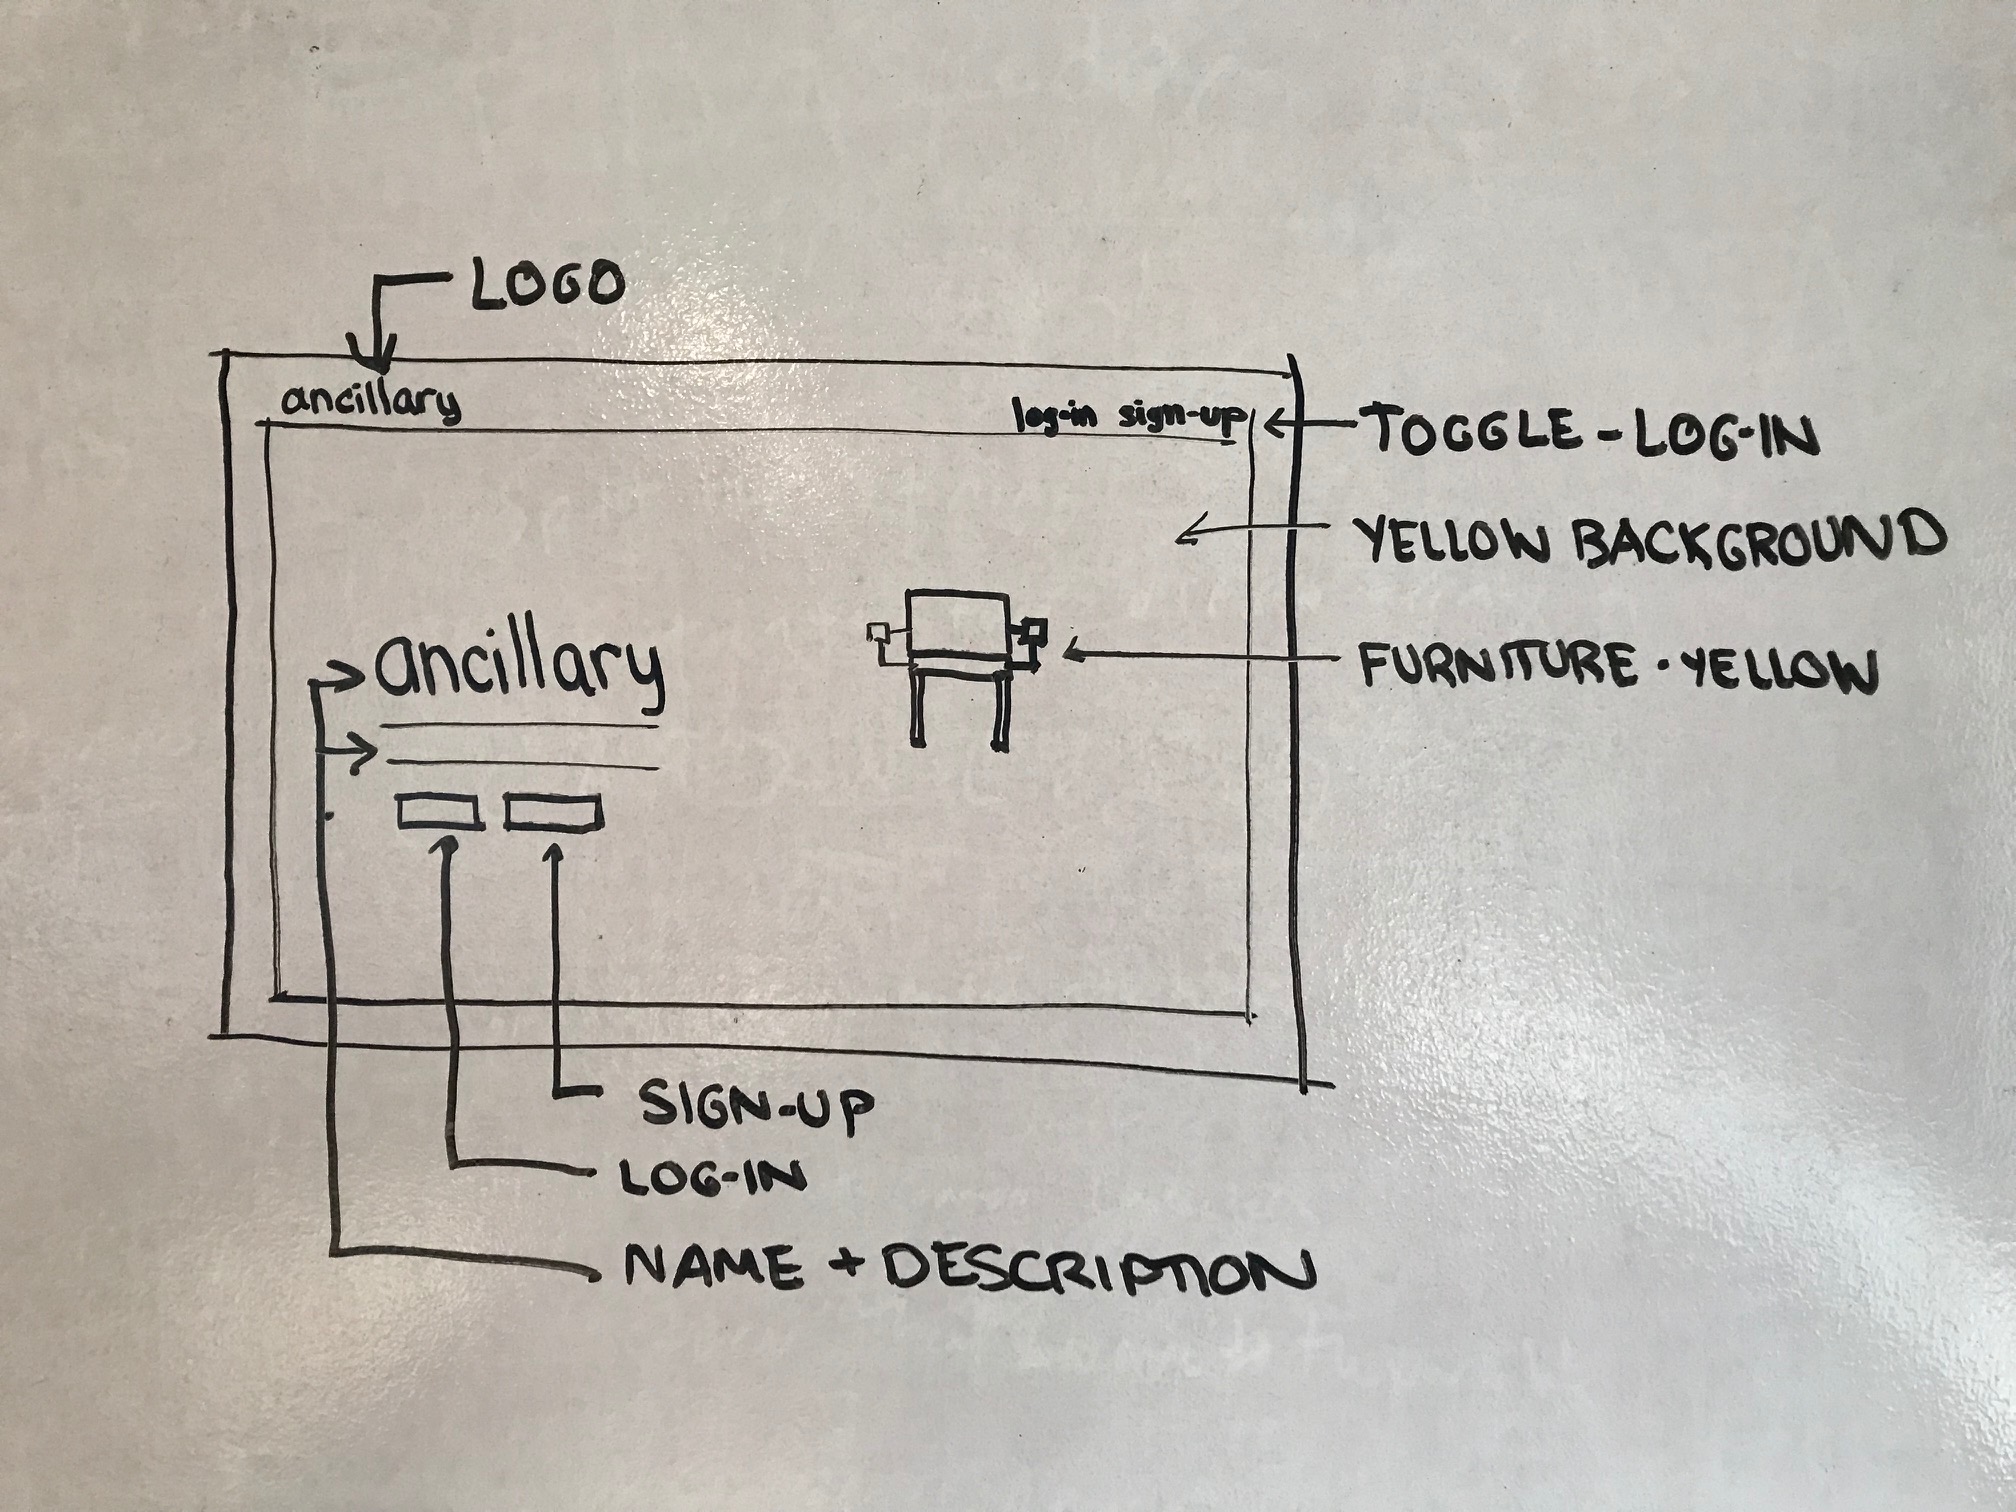 LOGO
ancillary
log-in sign-up
TOGGLE - LOG-IN
YELLOW BACKGROUND
FURNITURE · YELLOW
ancillary
SIGN-UP
LOG-IN
NAME + DESCRIPTION